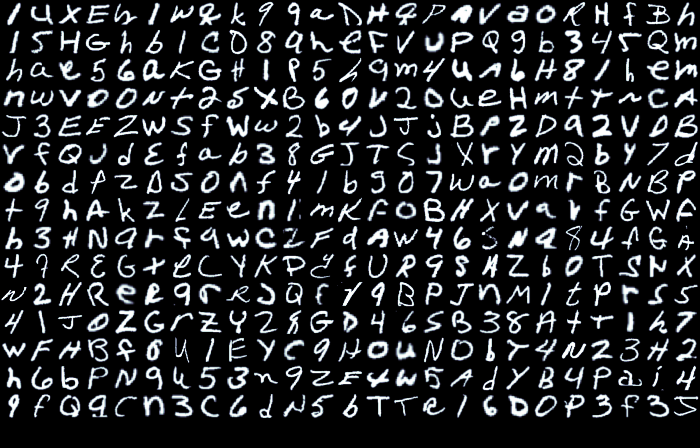 I U X E h I W & k 9 9 a D H 9 P A V a O R H f B h
I 5 H G h b I C D 8 9 h e F V U P Q 9 b 3 4 5 Q m
h a e 5 6 a K G H I P 5 h 9 m 4 u A 6 H 8 1 h e m
n w v O O N t 2 5 X B 6 0 V 2 D u e H m t r n C A
J 3 E E Z W S f W w 2 b 4 J J j B P Z D 9 2 V D E
v f Q J d E f a b 3 8 G J T S J X r Y m 2 b Y 7 d
o b d f Z D S O n f 4 1 b 9 0 7 W a O m r B N B P
t 9 h A k Z L E e n 1 m K F O B H X V a r f G W F
h 3 H N 9 r f 9 W C Z F d A W 4 6 S N 9 8 4 f G A
4 7 R E G t e C Y K P E f U R 9 9 A Z b O T S N X
N 2 H R e R 9 r R J Q F Y 9 B P J n M 1 t P r S 5
4 1 J O Z G r Z Y 2 8 G D 4 6 S B 3 8 A t t 1 h 7
W F H B f 8 U I E Y C 9 H O u N O b Y 4 N 2 3 H 2
h 6 b P N 9 U 5 3 n 9 Z E t w 5 A d Y B 4 P a i 4
9 f Q 9 C n 3 C 6 d N 5 b T T R 1 6 D O P 3 f 3 5